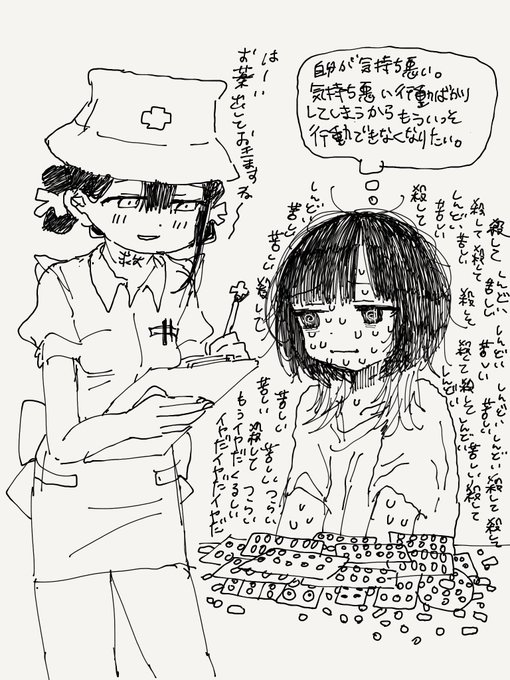 はーい
お薬出しておきますね〜
自分が気持ち悪い。
気持ち悪い行動ばかり
してしまうからもういっそ
行動できなくなりたい。
殺して
しんどい
苦しい
しんどい
苦しい
殺して
殺して
しんどい
苦しい
殺して
殺して
苦しい
しんどい
殺して
しんどい
苦しい
殺して
殺して
しんどい
しんどい
苦しい
殺して
しんどい
しんどい
殺して
殺して
苦しい
苦しい
つらい
苦しい
殺して
つらい
もうイヤだくるしい
イヤだイヤだイヤだ